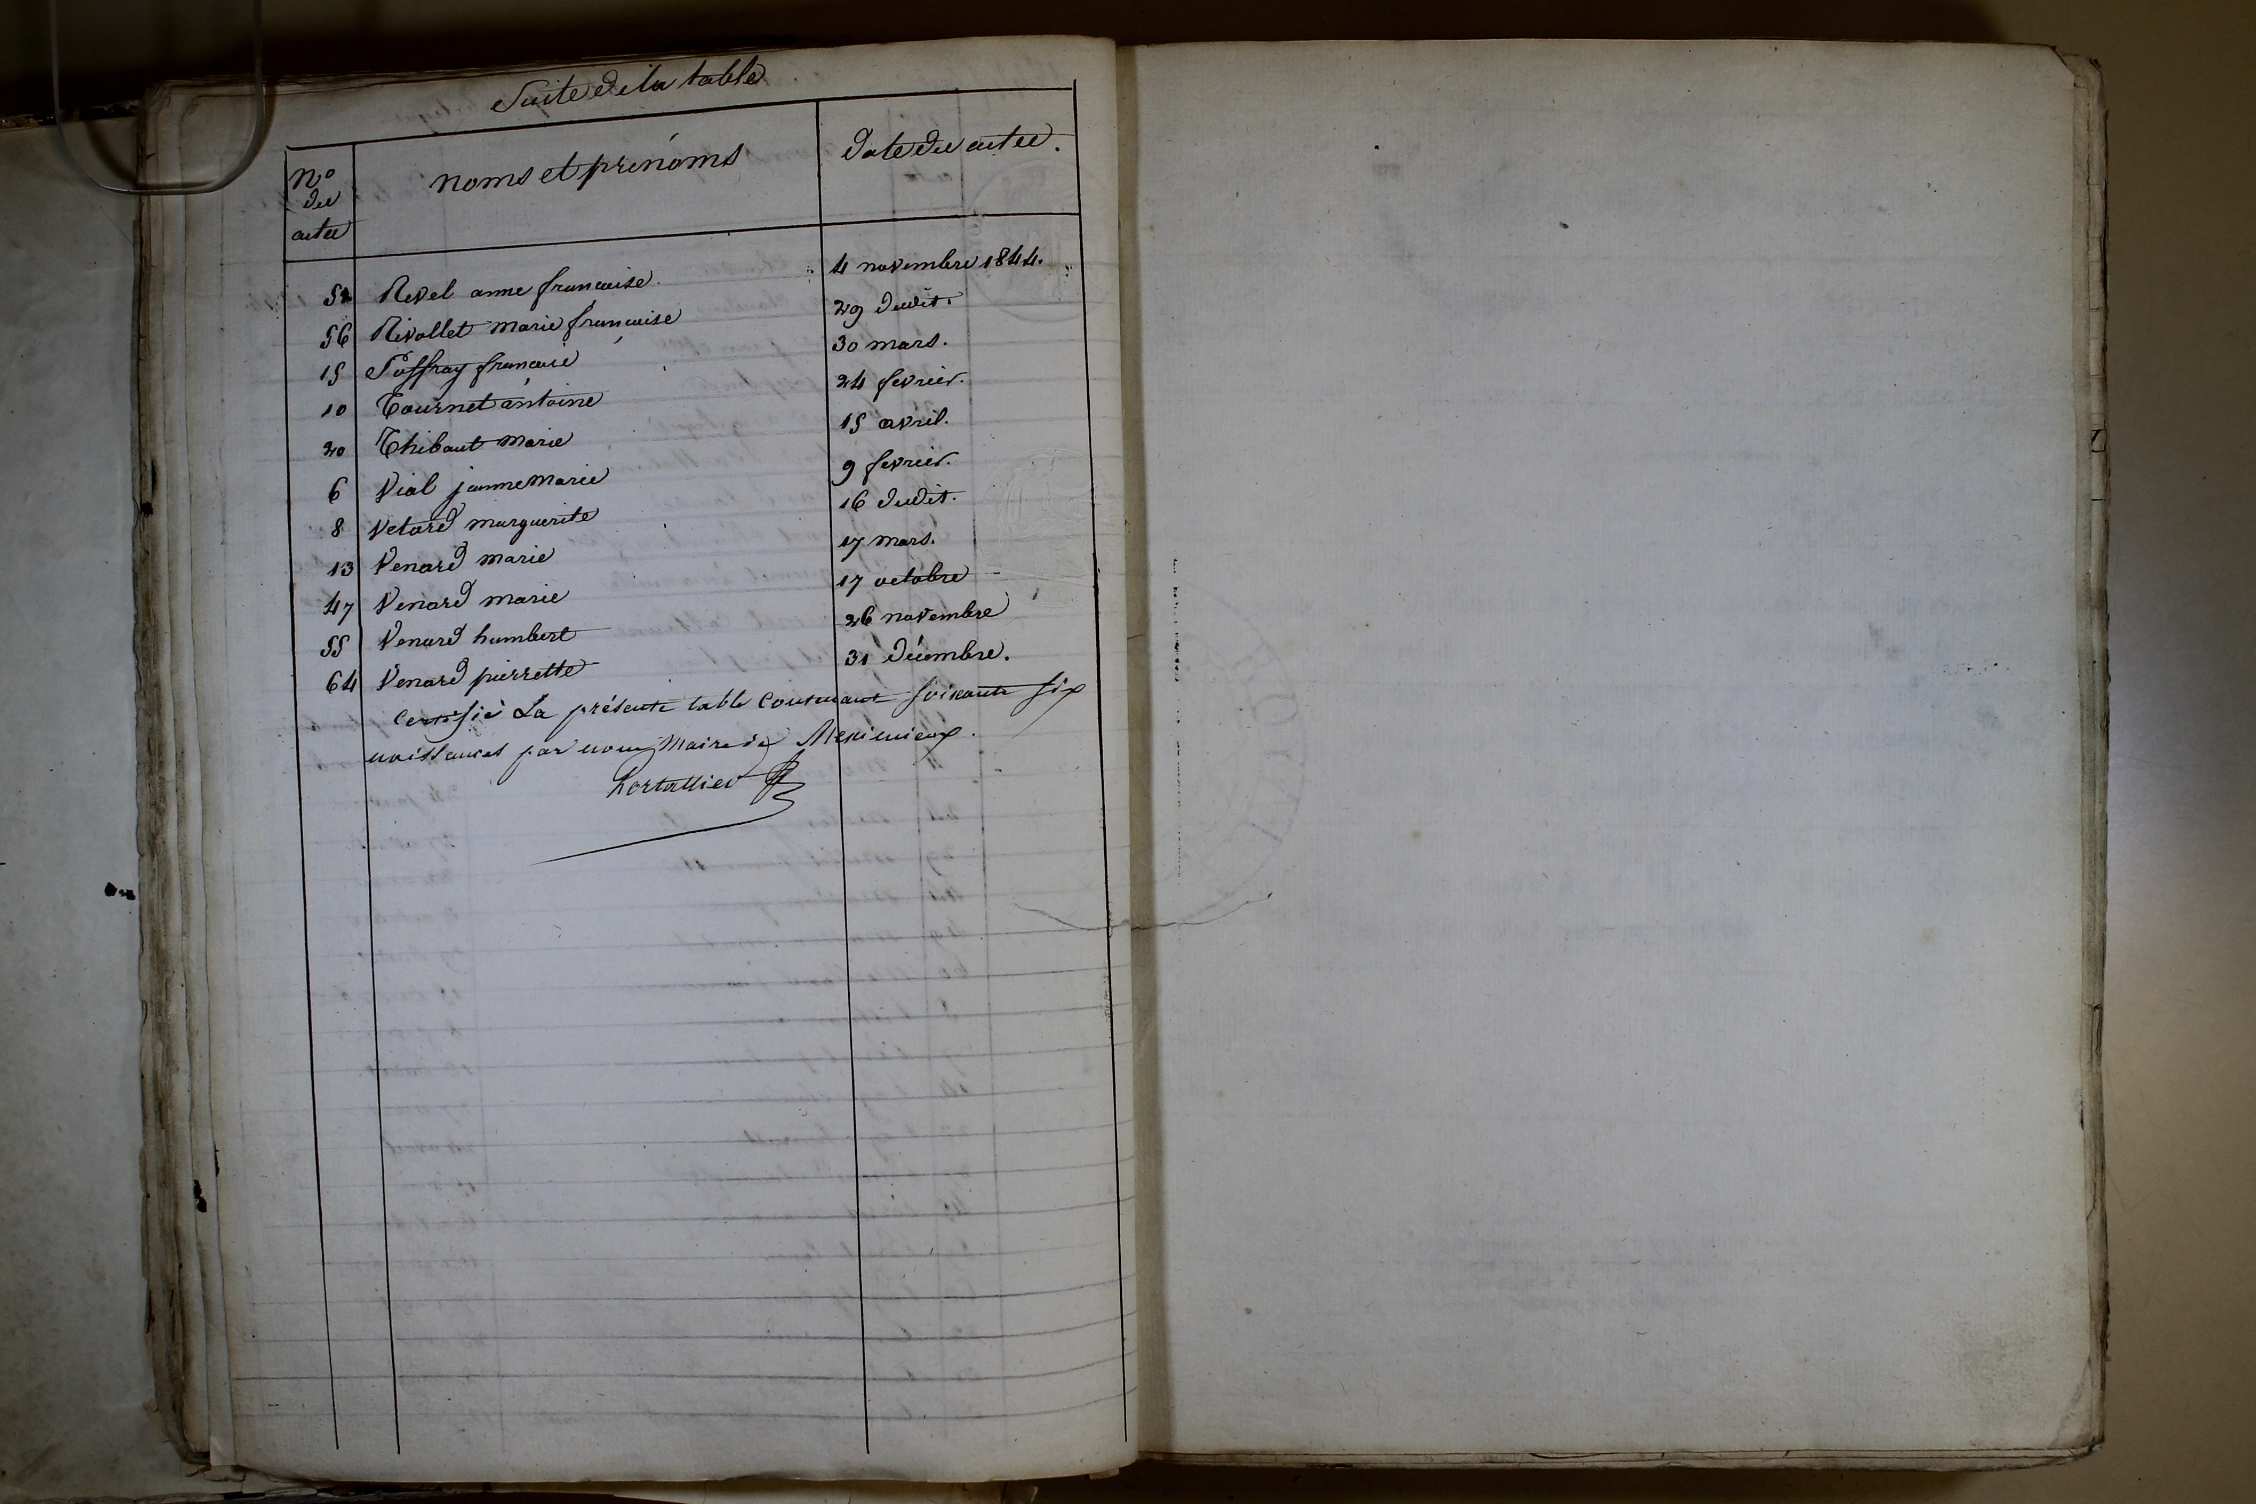 Suite de la table
No du acte noms et prénoms date du acte.
52 Revel anne francoise 4 novembre 1844.
56 Rivollet marie francoise 29 dudit.
15 Poffray francoise 30 mars.
10 Tournet antoine 24 fevrier.
20 Thibaut marie 15 avril.
6 Vial jeanne marie 9 fevrier.
8 Vetard marguerite 16 dudit.
13 Venard marie 17 mars.
47 Venard marie 17 octobre
55 Venard humbert 26 novembre
64 Venard pierrette 31 décembre.
certifié La présente table contenant soixante six
naissances par nous Maire de Meximieux.
hortallier